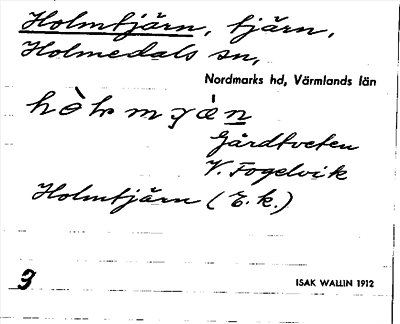 Holmtjärn, tjärn,
Holmedals sn,
Nordmarks hd, Värmlands län
Gårdtveten
V. Fogelvik
Holmtjärn (E.k.)
9
ISAK WALLIN 1912